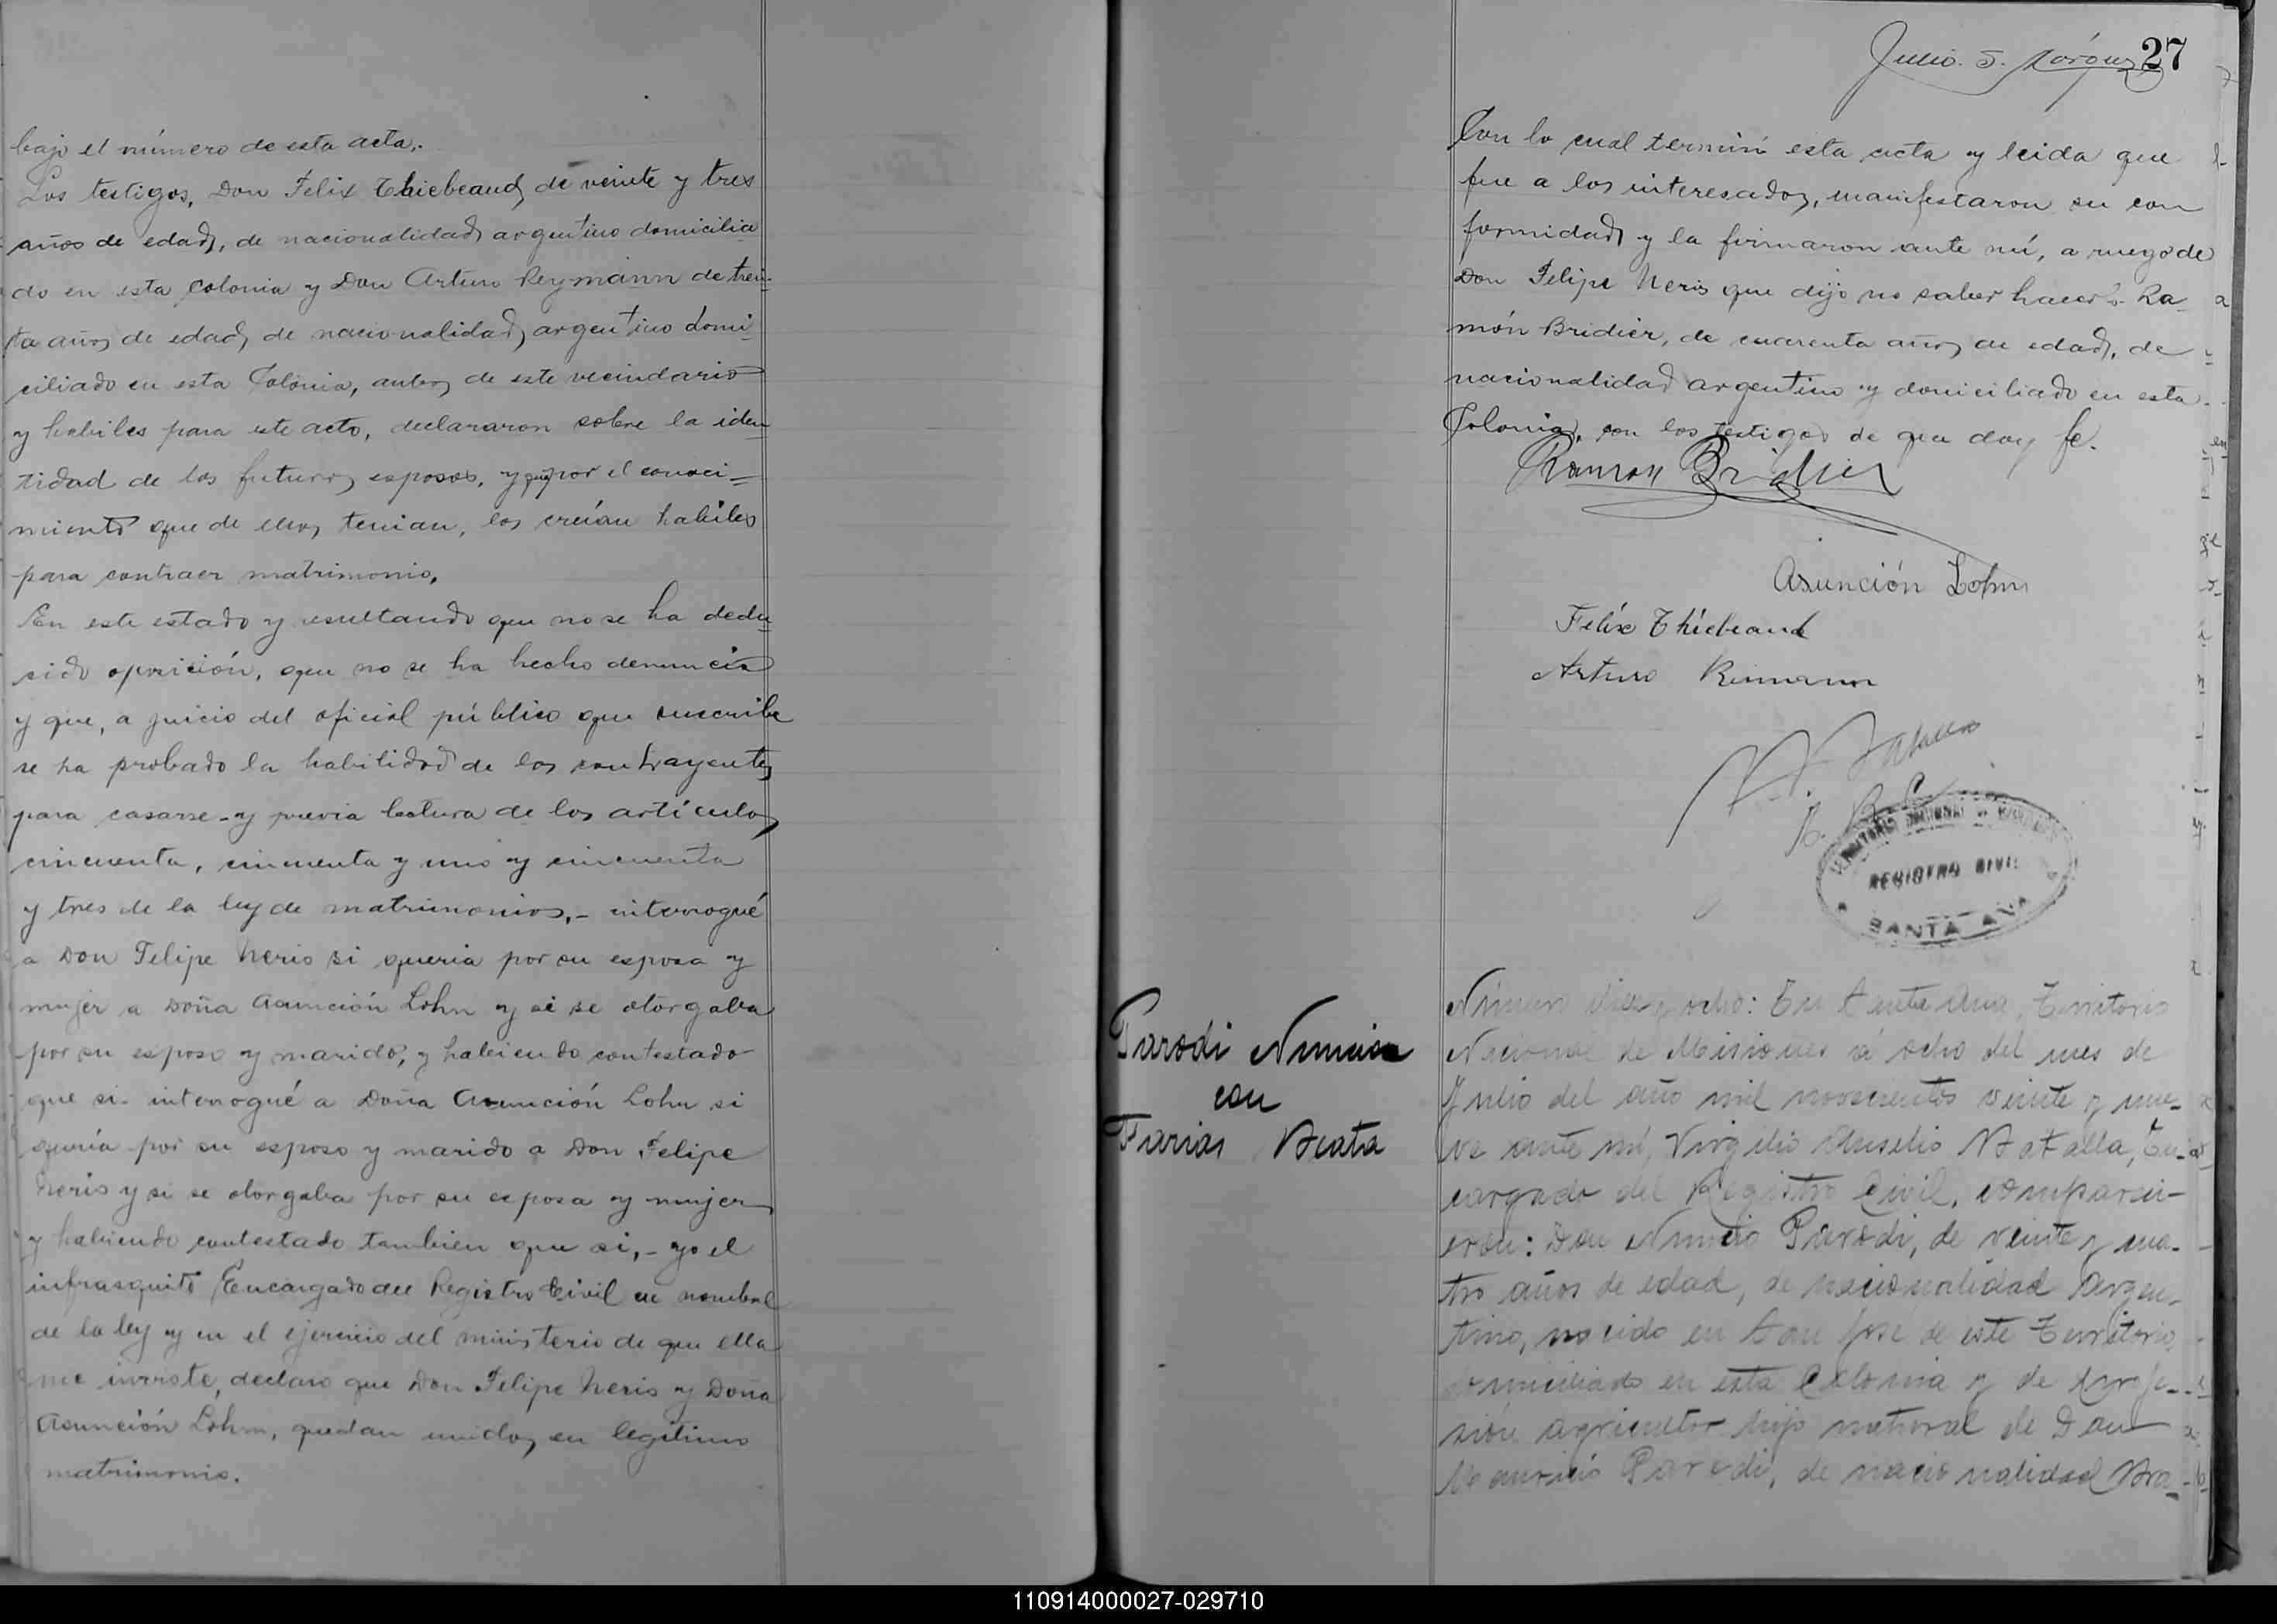 bajo el número de esta acta.
Los testigos, Don Felix Thiebeaud, de veinte y tres
años de edad, de nacionalidad argentino domicilia
do en esta Colonia y Don Arturo Reymann de trein-
ta años de edad, de nacionalidad argentino domi
ciliado en esta Colonia, ambos de este vecindario
y habiles para este acto, declararon sobre la iden
tidad de los futuros esposos, y que por el conoci-
miento que de ellos tenian, los creían habiles
para contraer matrimonio.
En este estado y resultando que no se ha dedu
cido oposición, que no se ha hecho denuncia
y que, a juicio del oficial público que suscribe
se ha probado la habilidad de los contrayentes
para casarse y previa lectura de los artículos
cincuenta, cincuenta y uno y cincuenta
y tres de la ley de matrimonios,- interrogué
a Don Felipe Neris si queria por su esposa y
mujer a Doña Asunción Lohn y si se otorgaba
por su esposo y marido, y habiendo contestado
que si- interrogué a Doña Asunción Lohn si
queria por su esposo y marido a Don Felipe
Neris y si se otorgaba por su esposa y mujer
y habiendo contestado tambien que si,- yo el
infrasquito Encargado del Registro Civil en nombre
de la ley y en el ejercicio del ministerio de que ella
me inviste, declaro que Don Felipe Neris y Doña
Asunción Lohn, quedan unidos en legitimo
matrimonio.
Julio. S.
27
Con lo cual terminó esta acta y leida que
fue a los interesados, manifestaron su con
formidad y la firmaron ante mí, a ruego de
Don Felipe Neris que dijo no saber hacerlo Ra
món Bridier, de cuarenta años de edad, de
nacionalidad argentino y domiciliado en esta
Colonia, con los testigos de que doy fe.
Ramon Bridier
Asunción Lohn
Felix Thiebeaud
Arturo Rimann
REGISTRO CIVIL
SANTA ANA
Parodi Nuncio
con
Farias Beata
Número diez y ocho: En Santa Ana, Territorio
Nacional de Misiones á ocho del mes de
Julio del año mil novecientos veinte y nue-
ve ante mí, Virgilio Anselio Batalla, En-
cargado del Registro Civil, comparecie-
eron: Don Nuncio Parodi, de veinte y cua-
tro años de edad, de nacionalidad Argen-
tino, nacido en San José de este Territorio,
domiciliado en esta Colonia y de profe-
sión agricultor hijo natural de Don
Mauricio Parodi, de nacionalidad Bra-
110914000027-029710